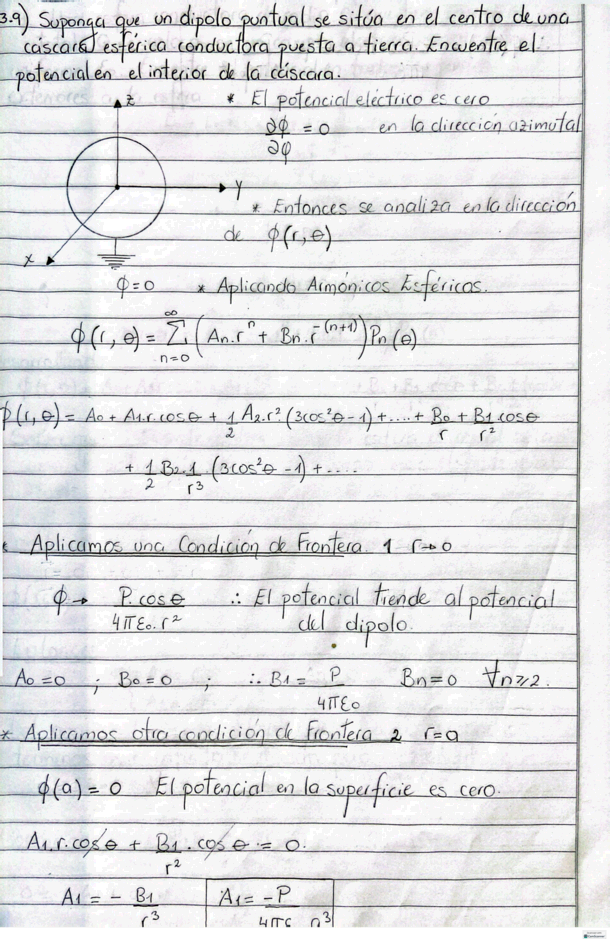 3.9) Suponga que un dipolo puntual se sitúa en el centro de una
cáscara esférica conductora puesta a tierra. Encuentre el
potencial en el interior de la cáscara.
z
* El potencial eléctrico es cero
∂ϕ/∂φ = 0 en la dirección azimutal
y
* Entonces se analiza en la dirección
de ϕ(r,θ)
x
ϕ=0 * Aplicando Armónicos Esféricos.
ϕ(r,θ) = ∑_{n=0}^{∞} (An.r^n + Bn.r^{-(n+1)}) Pn(θ)
ϕ(r,θ) = A0 + A1.r.cosθ + 1/2 A2.r² (3cos²θ - 1) + .... + B0/r + B1/r² cosθ
+ 1/2 B2.1/r³ .(3cos²θ - 1) + ....
* Aplicamos una Condición de Frontera. 1 r→0
ϕ → P.cosθ / 4πε0.r² ∴ El potencial tiende al potencial
del dipolo.
A0 = 0 ; B0 = 0 ; ∴ B1 = P/4πε0 Bn = 0 ∀n≥2.
* Aplicamos otra condición de Frontera 2 r=a
ϕ(a) = 0 El potencial en la superficie es cero.
A1.r.cosθ + B1/r² . cosθ = 0.
A1 = - B1/r³ A1 = -P/4πε a³